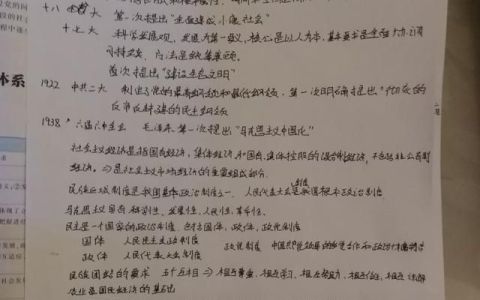 十八大 第一次提出"全面建成小康社会"
十七大 科学发展观,发展为第一要义,核心是以人为本,基本要求是全面协调
可持续,方法是统筹兼顾。
首次提出"建设生态文明"
1922 中共二大 制定了党的最高纲领和最低纲领,第一次明确提出"彻底的
反帝反封建的民主纲领
1938 六届六中全会 毛泽东第一次提出"马克思主义中国化"
社会主义经济是指国有经济,集体经济和国有、集体控股的混合制经济,不包括非公有制
经济。是社会主义市场经济的重要组成部分
民族区域制度是我国基本政治制度之一、人民代表大会制度是我国根本政治制度
马克思主义具有科学性、发展性、人民性、革命性。
民主是一个国家的政治制度,包括国体,政体,政党制度
国体 人民民主专政制度 政党制度 中国共产党领导的多党合作和政治协商制度
政体 人民代表大会制度
民族团结的要求 五个互相 相互尊重、相互学习、相互帮助、相互信任、相互谅解
农业是国民经济的基础
体系